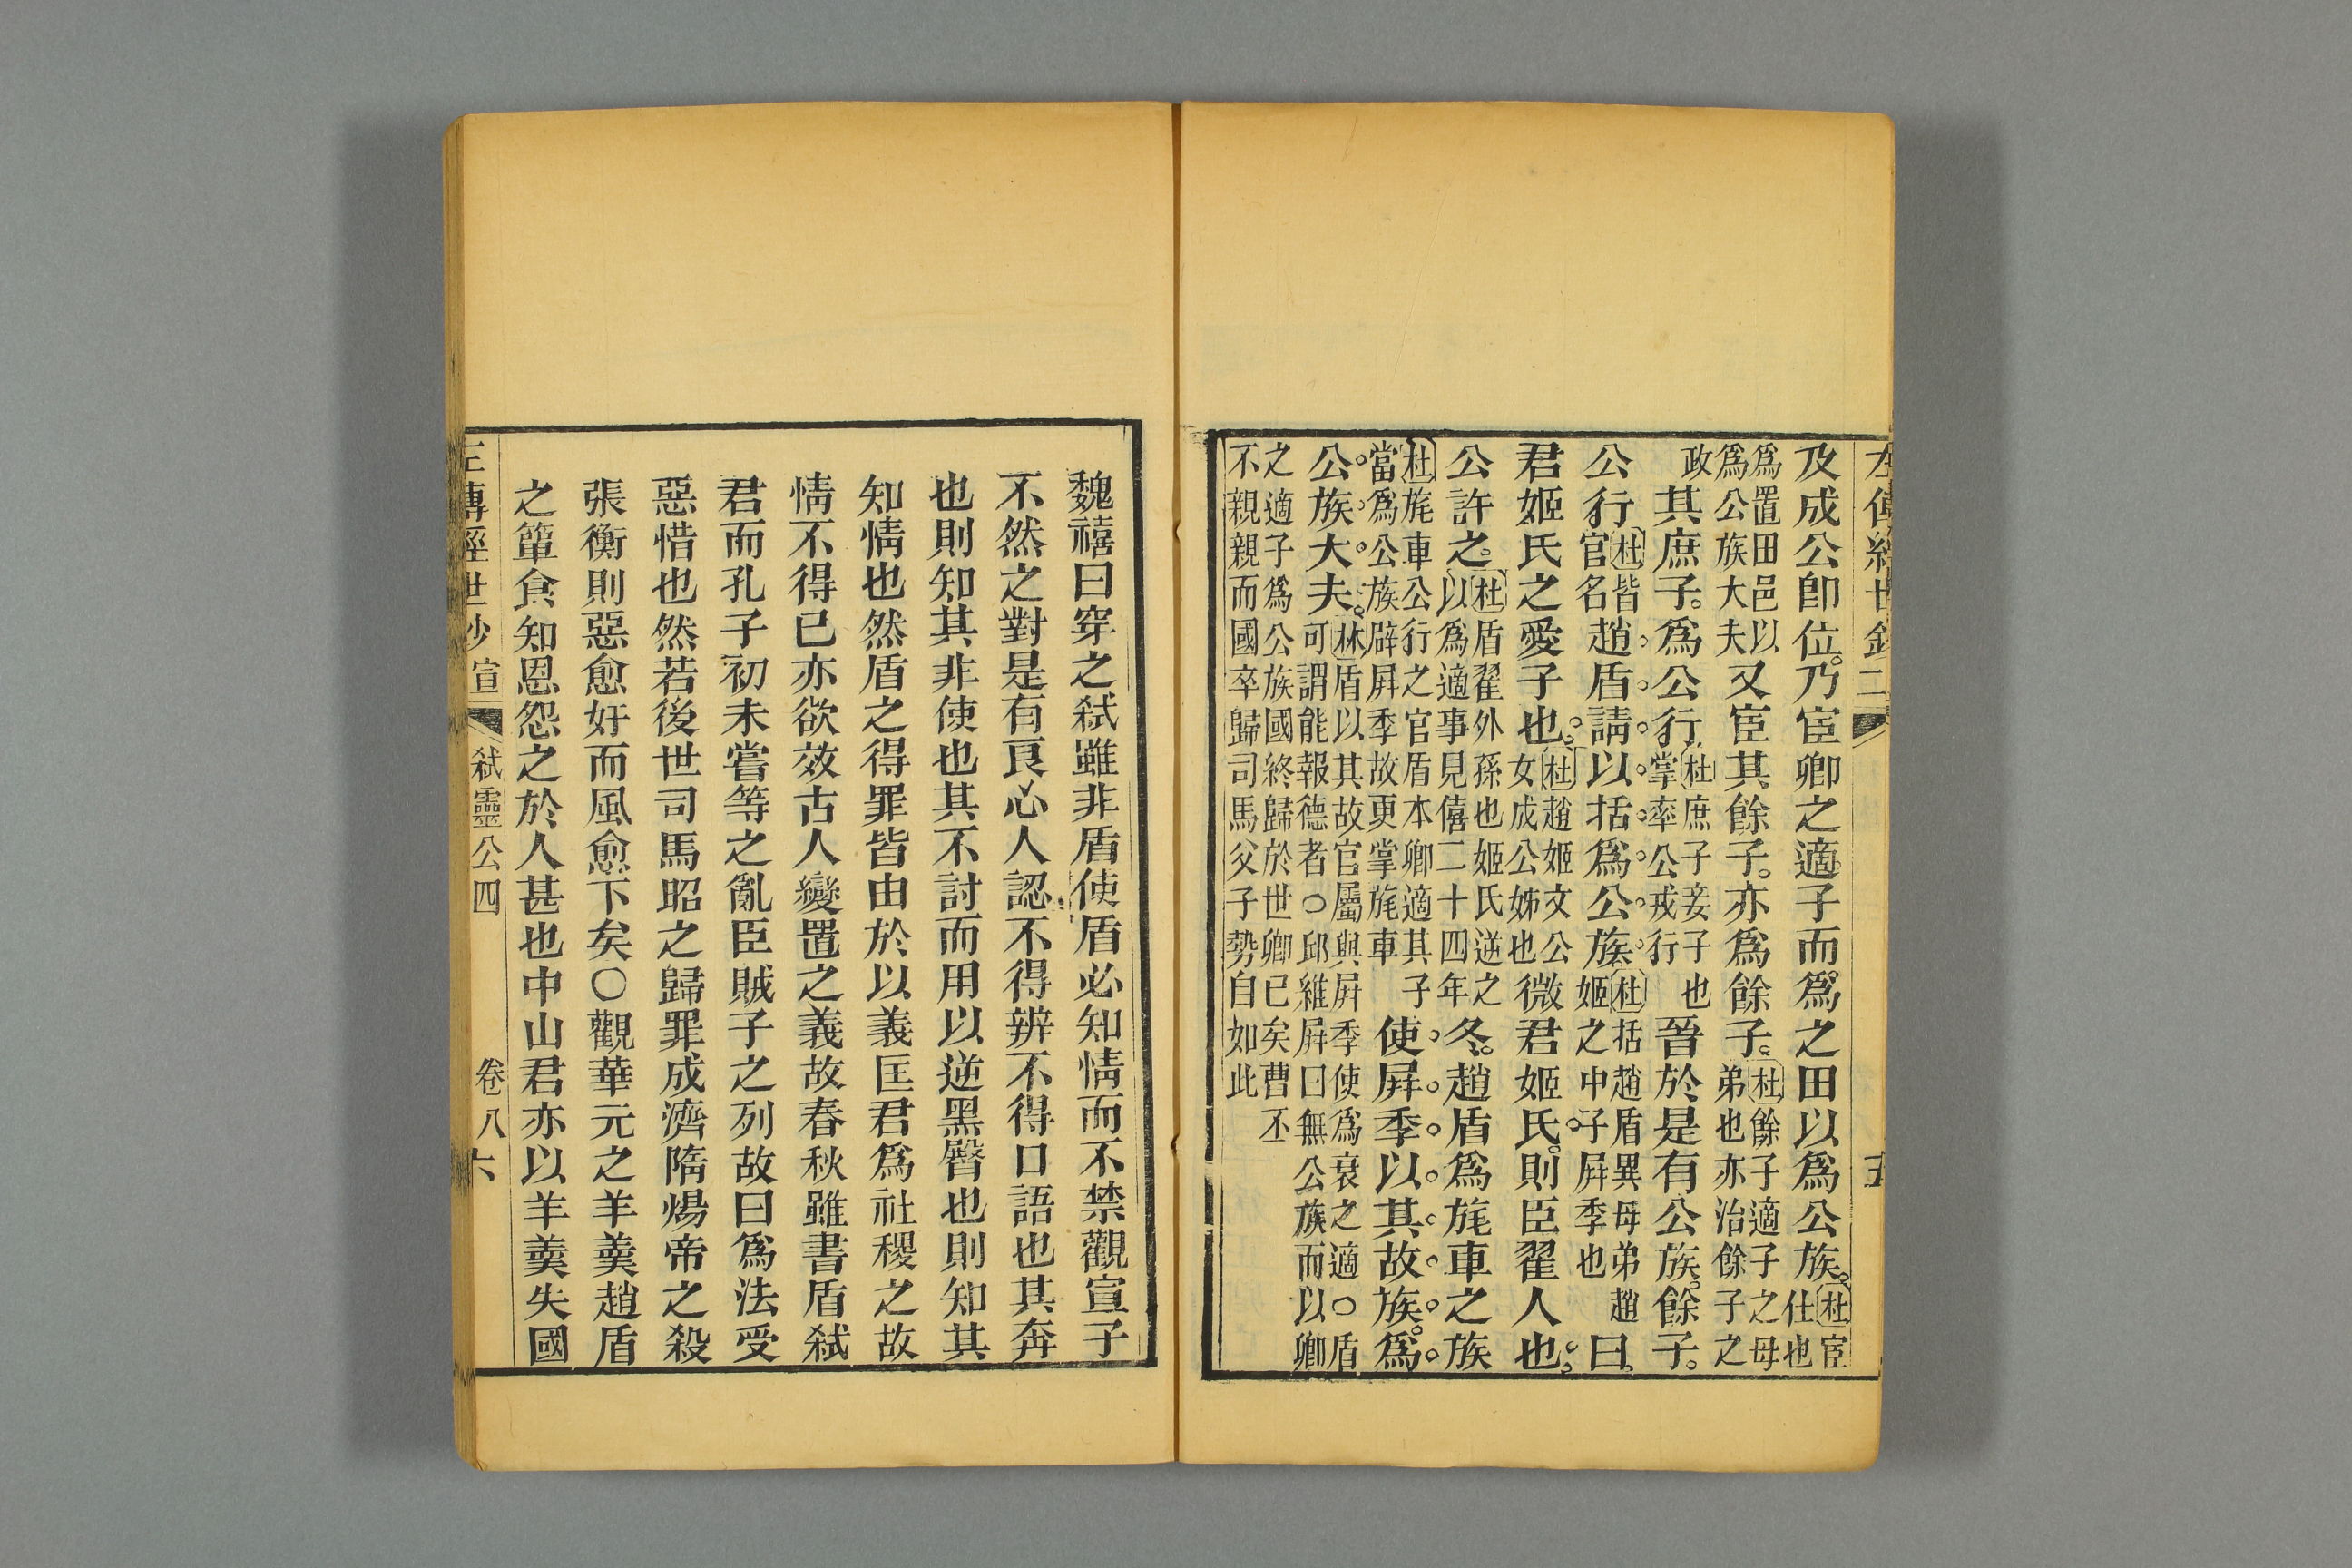 左傳經世鈔二 五
及成公卽位。乃宦卿之適子而爲之田以爲公族。杜宦仕也
爲置田邑以爲公族大夫又宦其餘子。亦爲餘子。杜餘子適子之母弟也亦治餘子之
政其庶子。爲公行。杜庶子妾子也掌率公戎行晉於是有公族。餘子。
公行杜皆官名趙盾請以括爲公族。杜括趙盾異母弟趙姬之中子屛季也曰。
君姬氏之愛子也。杜趙姬文公女成公姊也微君姬氏。則臣翟人也。
公許之。杜盾翟外孫也姬氏逆之以爲適事見僖二十四年冬。趙盾爲旄車之族
杜旄車公行之官盾本卿適其子當爲公族辟屛季故更掌旄車使屛季以其故族。爲
公族大夫。林盾以其故官屬與屛季使爲衰之適○盾可謂能報德者○邱維屛曰無公族而以卿
之適子爲公族國終歸於世卿已矣曹丕不親親而國卒歸司馬父子勢自如此
魏禧曰穿之弑雖非盾使盾必知情而不禁觀宣子
不然之對是有良心人認不得辨不得口語也其奔
也則知其非使也其不討而用以逆黑臀也則知其
知情也然盾之得罪皆由於以義匡君爲社稷之故
情不得已亦欲效古人變置之義故春秋雖書盾弑
君而孔子初未嘗等之亂臣賊子之列故曰爲法受
惡惜也然若後世司馬昭之歸罪成濟隋煬帝之殺
張衡則惡愈奸而風愈下矣○觀華元之羊羹趙盾
之簞食知恩怨之於人甚也中山君亦以羊羹失國
左傳經世鈔 宣 弑靈公四 卷八 六